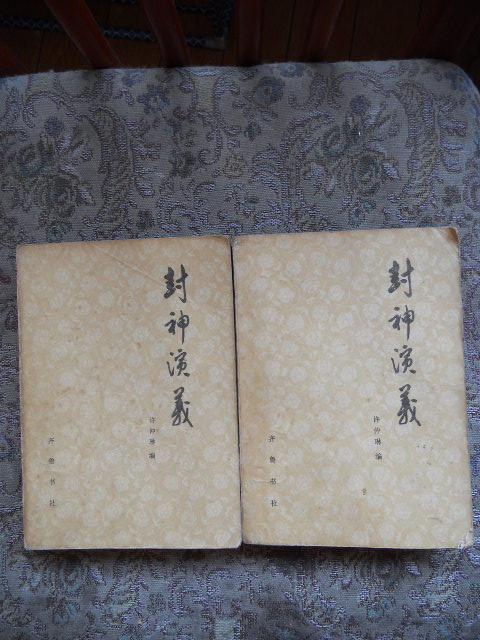 封神演義
许仲琳编
齐鲁书社
封神演義
许仲琳编
齐鲁书社